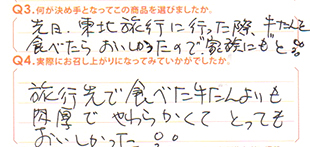 Q3.何が決め手となってこの商品を選びましたか。
先日、東北旅行に行った際、牛たんを
食べたらおいしかったので、家族にもと
Q4.実際にお召し上がりになってみていかがでしたか。
旅行先で食べた牛たんよりも
肉厚でやわらかくてとっても
おいしかった